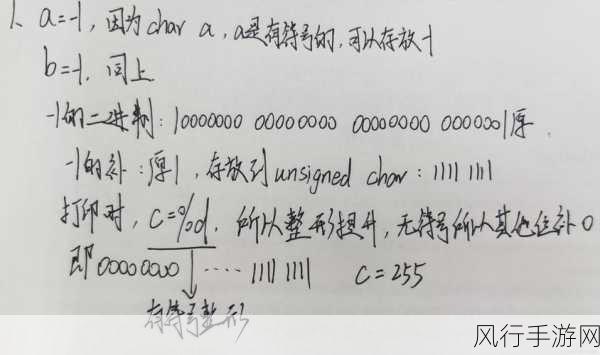 1、a=-1，因为char a，a是有符号的，可以存放-1
b=-1，同上
-1的二进制：10000000 00000000 00000000 0000001原
-1的补：厚1，存放到unsigned char：1111 1111
打印时，c=%d，所以整形提升，无符号所以其他位补0
即00000000 ····· 1111 1111 c=255
有符号整形
风行手游网